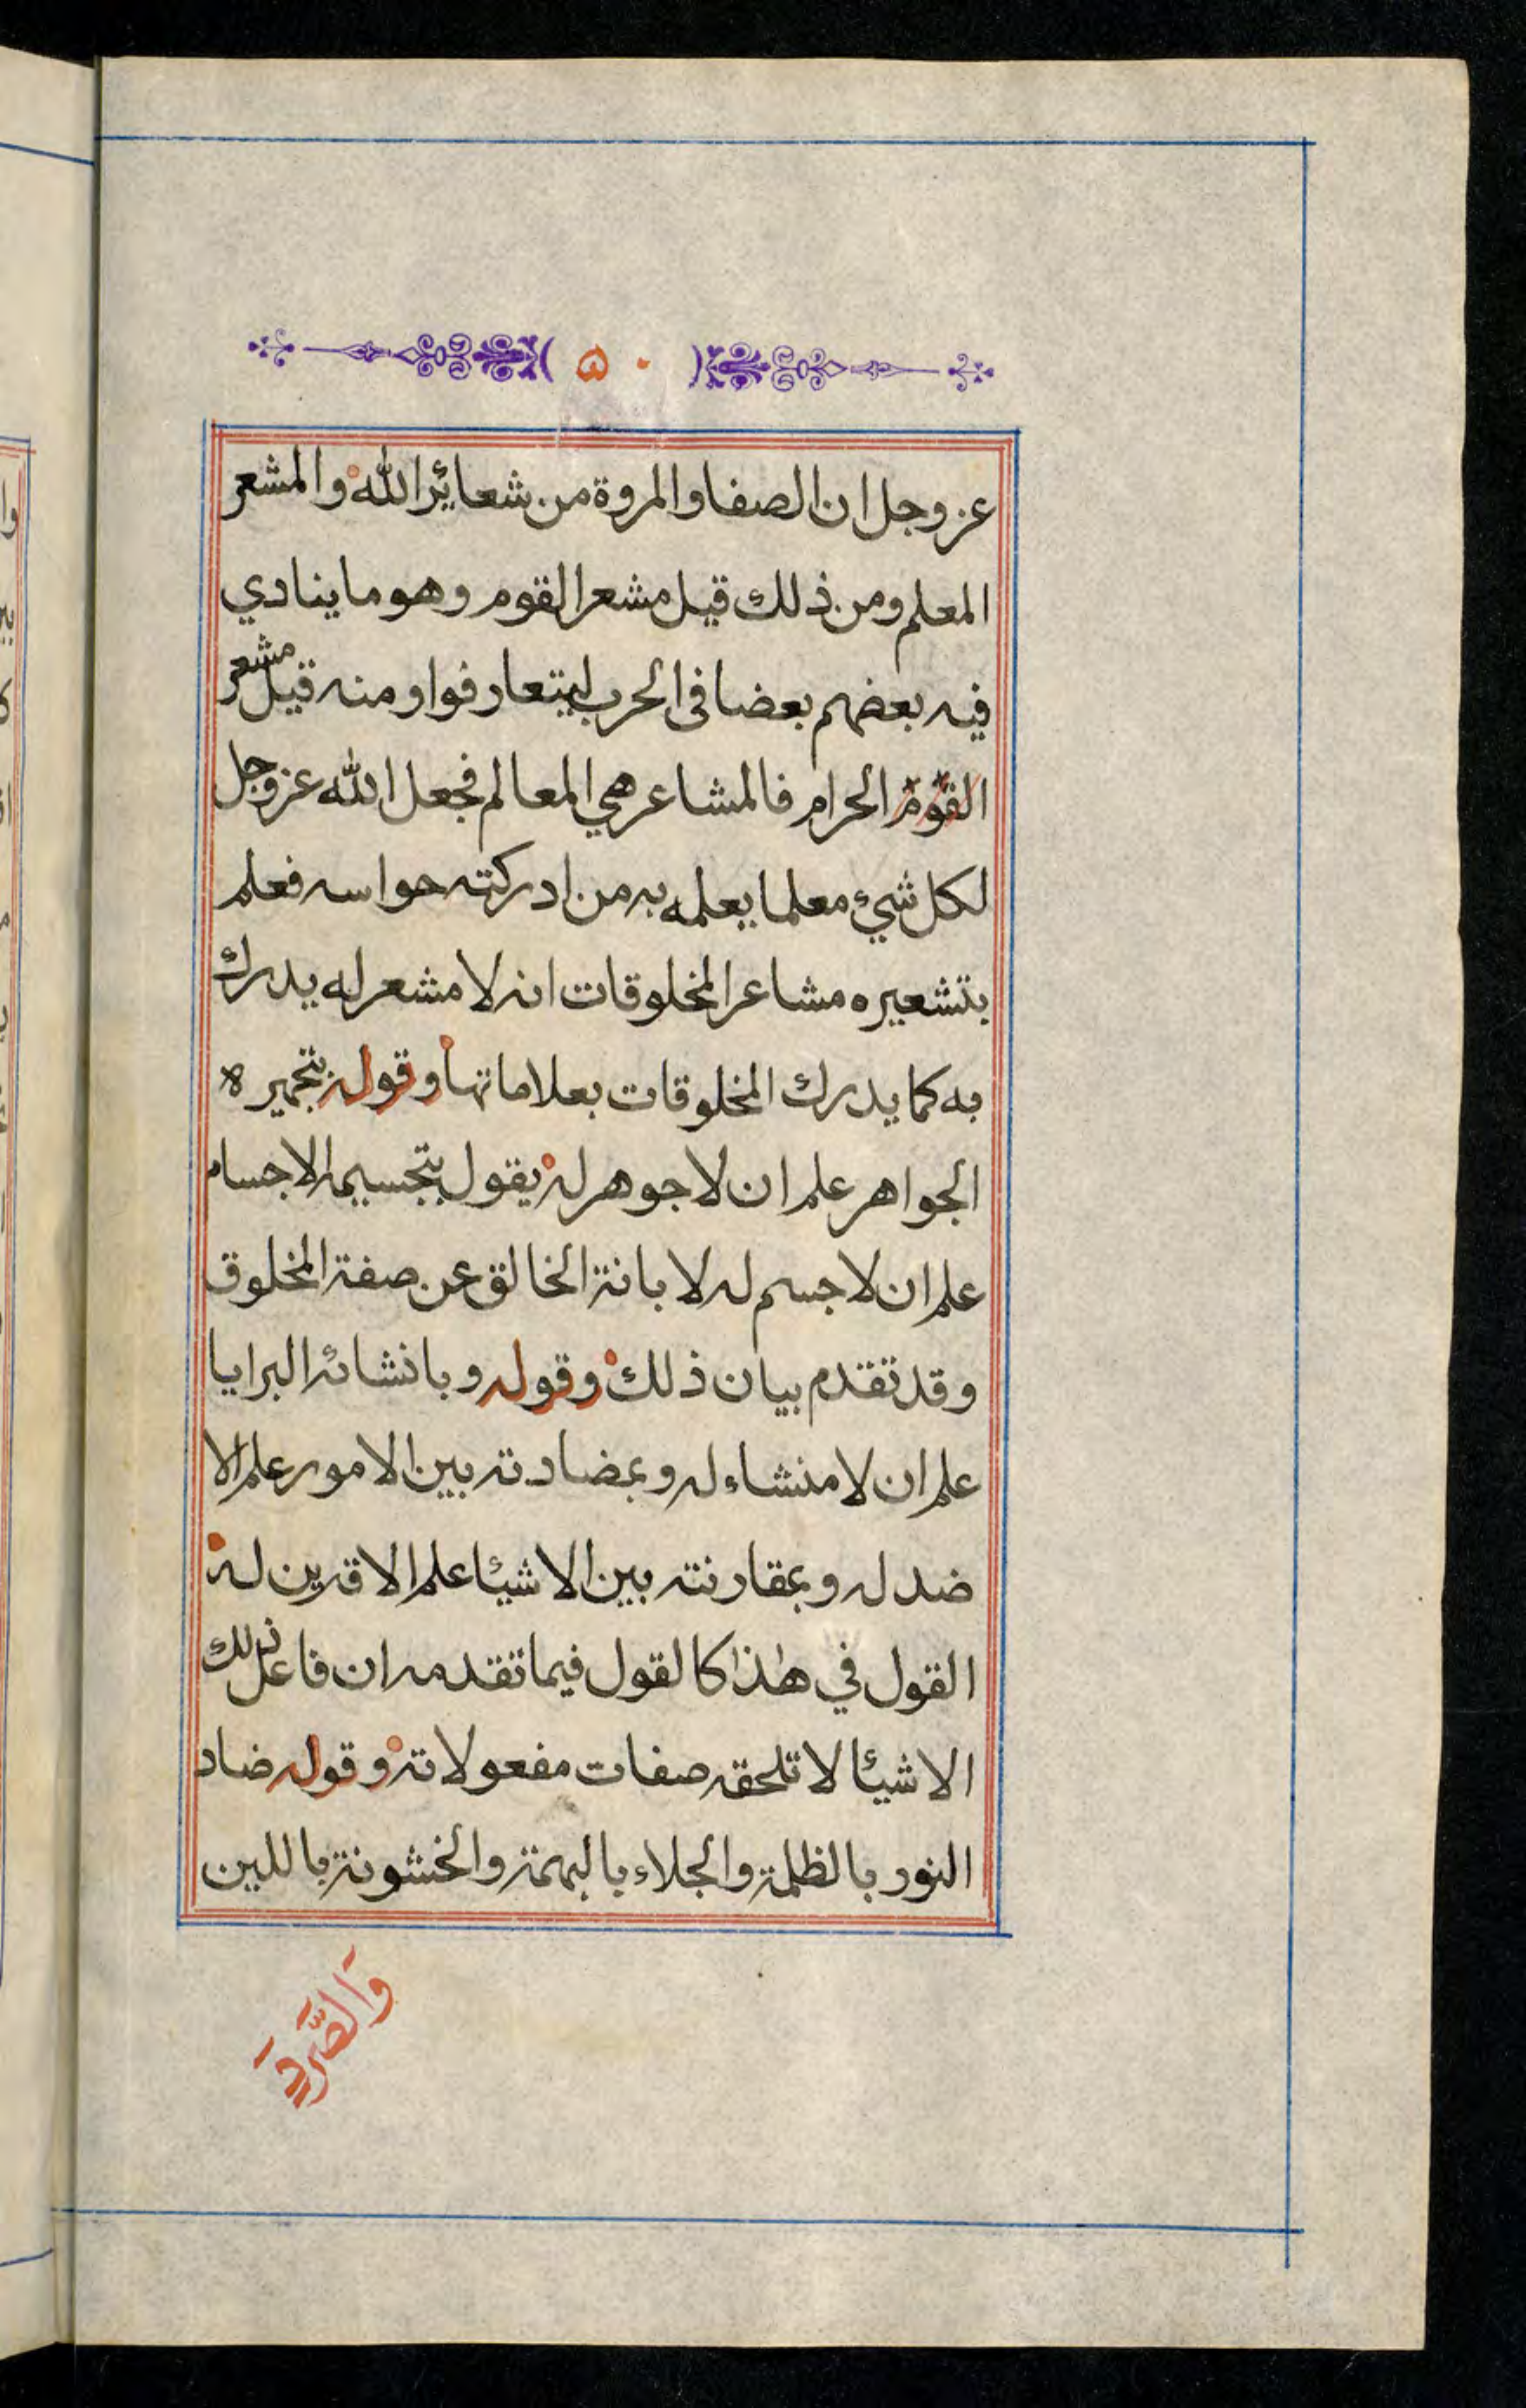 ٥٠
عز وجل ان الصفا والمروة من شعائر الله والمشعر
المعلم ومن ذلك قيل مشعر القوم وهو ما ينادي
فيه بعضهم بعضا فى الحرب ليتعارفوا ومنه قيل مشعر
القوم الحرام فالمشاعر هي المعالم فجعل الله عز وجل
لكل شيء معلما يعلمه به من ادركته حواسه فعلم
بتشعيره مشاعر المخلوقات انه لا مشعر له يدرك
به كما يدرك المخلوقات بعلاماتها وقوله بتجهيره
الجواهر علم ان لا جوهر له يقول بتجسيمه الاجسام
علم ان لا جسم له لابانة الخالق عن صفة المخلوق
وقد تقدم بيان ذلك وقوله وبانشائه البرايا
علم ان لا منشاء له وبمضادته بين الامور علم الا
ضد له وبمقارنته بين الاشيئا علم الا قرين له
القول في هٰذا كالقول فيما تقدمه ان فاعل ذلك
الاشيئا لا تلحقه صفات مفعولاته وقوله ضاد
النور بالظلمة والجلاء بالبهمة والخشونة باللين
وَالصَّرَدَ